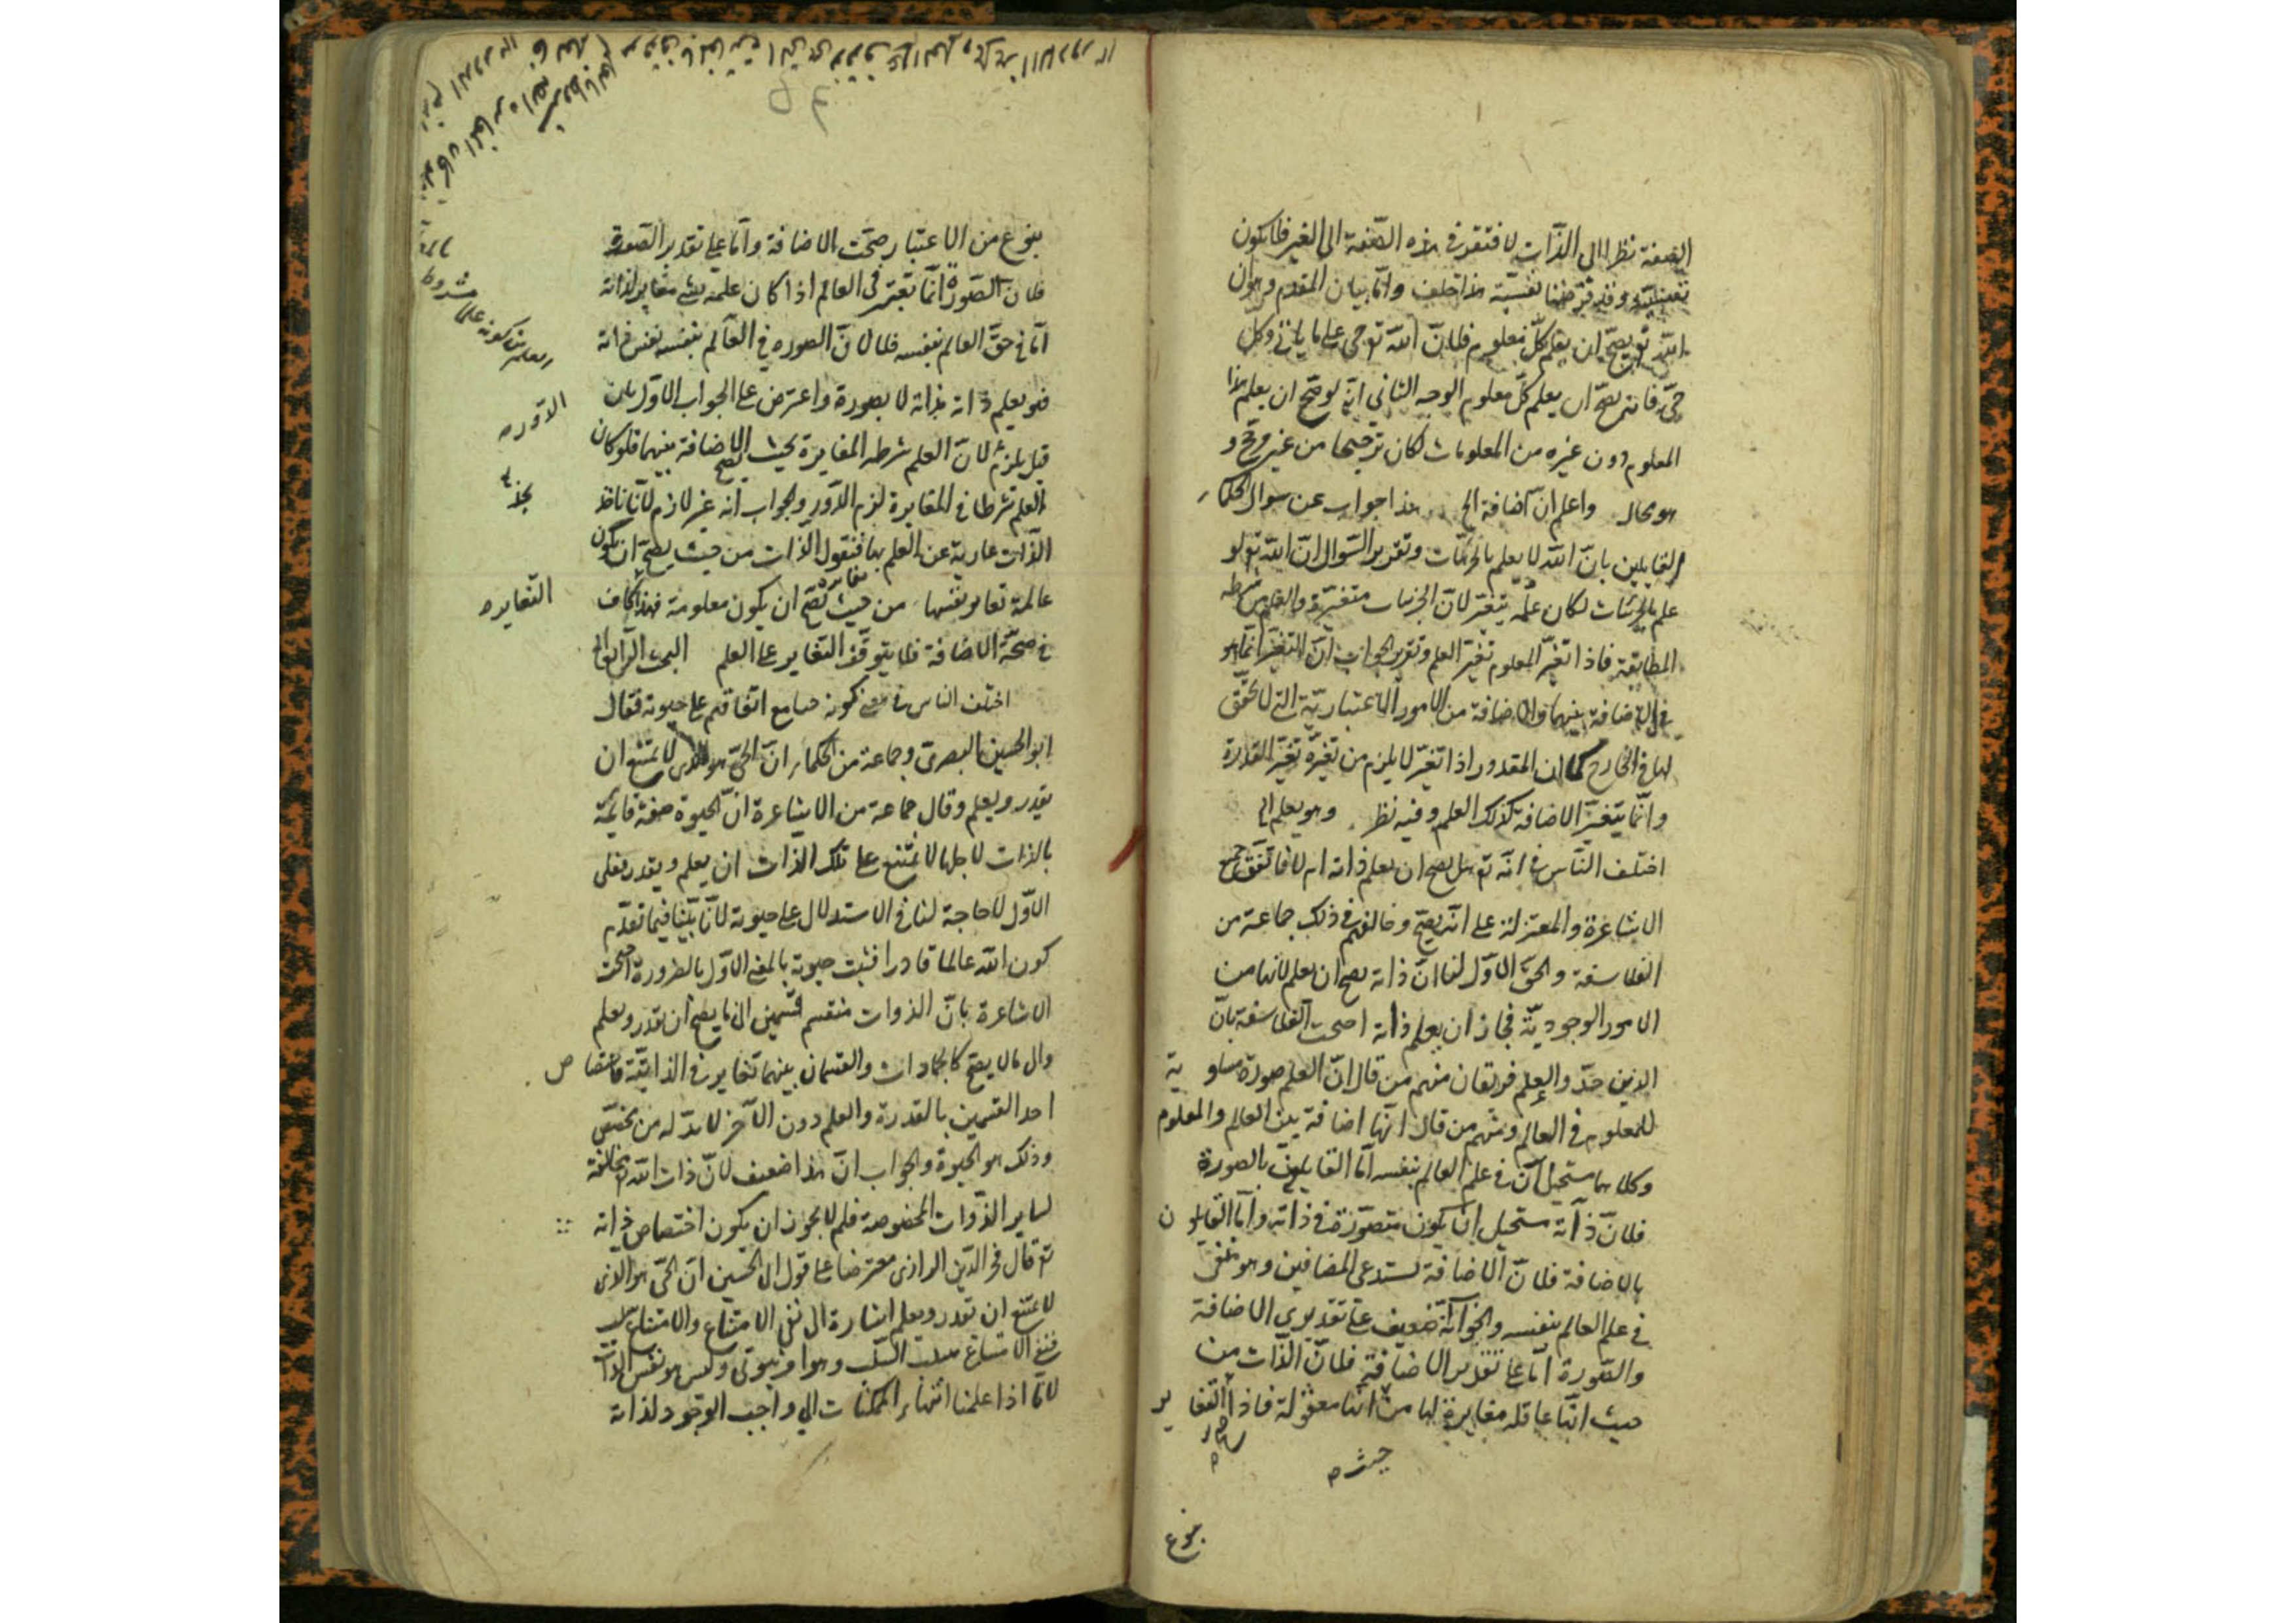 الصفة نظرا الى الذات لافتقرت في هذه الصفة الى الغير فلا يكون
نفسية وقد فرضنا نفسية هذا خلف واما بيان المقدم وهو ان
الله تع يصح ان يعلم كل معلوم فلان الله تع حي على ما ياتي وكل
حي فانه يصح ان يعلم كل معلوم الوجه الثاني انه لو صح ان يعلم هذا
المعلوم دون غيره من المعلومات لكان ترجيحا من غير مرجح و
هو محال واعلم ان اضافة الخ هذا جواب عن سوال الحكماء
القايلين بان الله لا يعلم بالجزئيات وتقرير السوال ان الله تع لو
علم بالجزئيات لكان علمه يتغير لان الجزئيات متغيرة والعلم من شرطه
المطابقة فاذا تغير المعلوم تغير العلم وتقرير الجواب ان التغير انما هو
في الاضافة بينهما والاضافة من الامور الاعتبارية التي لا تحقق
لها في الخارج كما ان المقدور اذا تغير لا يلزم من تغيره تغير القدرة
وانما يتغير الاضافة كذلك العلم وفيه نظر وهو يعلم الخ
اختلف الناس في انه تع هل يصح ان يعلم ذاته ام لا فاتفق جميع
الاشاعرة والمعتزلة على انه يصح وخالفهم في ذلك جماعة من
الفلاسفة والحق الاول لنا ان ذاته يصح ان يعلم لانها من
الامور الوجودية فجاز ان يعلم ذاته احتجت الفلاسفة بان
الذين حد والعلم فريقان منهم من قال ان العلم صورة مساوية
للمعلوم في العالم ومنهم من قال انها اضافة بين العالم والمعلوم
وكلاهما مستحيلان في علم العالم بنفسه اما القايلون بالصورة
فلان ذاته مستحيل ان يكون متصورة في ذاته واما القايلون
بالاضافة فلان الاضافة تستدعي المضافين وهو منفي
في علم العالم بنفسه والجواب انه ضعيف على تقديري الاضافة
والصورة اما على تقدير الاضافة فلان الذات من
حيث انها عاقلة مغايرة لها من انها معقولة فاذا التغاير
حيث
بنوع
بنوع من الاعتبار صحت الاضافة واما على تقدير الصورة
فلان الصورة انما تعتبر في العالم اذا كان علمه بشئ مغاير لذاته
اما في حق العالم بنفسه فلا لان الصورة في العالم بنفسه نفس ذاته
فهو يعلم ذاته بذاته لا بصورة واعترض على الجواب الاول بان
قيل يلزم لان العلم شرطه المغايرة بحيث يصح الاضافة بينهما فلو كان
الدور
العلم شرطا في المغايرة لزم الدور والجواب انه غير لازم لانا ناخذ
الذات عارية عن العلم بها فنقول الذات من حيث يصح ان يكون
عالمة تغاير نفسها من حيث تصح ان يكون معلومة فهذا كاف
التغاير
في صحة الاضافة فلا يتوقف التغاير على العلم البحث الرابع الخ
اختلف الناس في معنى كونه حيا مع اتفاقهم على حيوته فقال
ابو الحسين البصرى وجماعة من الحكماء ان الحي هو الذي لا يمتنع ان
يقدر ويعلم وقال جماعة من الاشاعرة ان الحيوة صفة قايمة
بالذات لاجلها لا يمتنع على تلك الذات ان يعلم ويقدر فعلى
الاول لا حاجة لنا في الاستدلال على حيوته لانا بينا فيما تقدم
كون الله عالما قادرا فثبت حيوته بالمعنى الاول بالضرورة احتجت
الاشاعرة بان الذوات منقسم قسمين الى ما يصح ان يقدر ويعلم
والى ما لا يصح كالجمادات والقسمان بينهما تغاير في الذاتية فاختصاص
احد القسمين بالقدرة والعلم دون الآخر لا بد له من مخصص
وذلك هو الحيوة والجواب ان هذا ضعيف لان ذات الله تع مخالفة
لساير الذوات المخصوصة فلم لا يجوز ان يكون اختصاص ذاته
ثم قال فخر الدين الرازى معترضا على قول ابى الحسين ان الحي هو الذى
لا يمتنع ان يقدر ويعلم اشارة الى نفي الامتناع والامتناع سلب
فنفي الامتناع سلب السلب وهو امر ثبوتى وليس هو نفس الذات
لانا اذا علمنا انتهاء الممكنات الى واجب الوجود لذاته